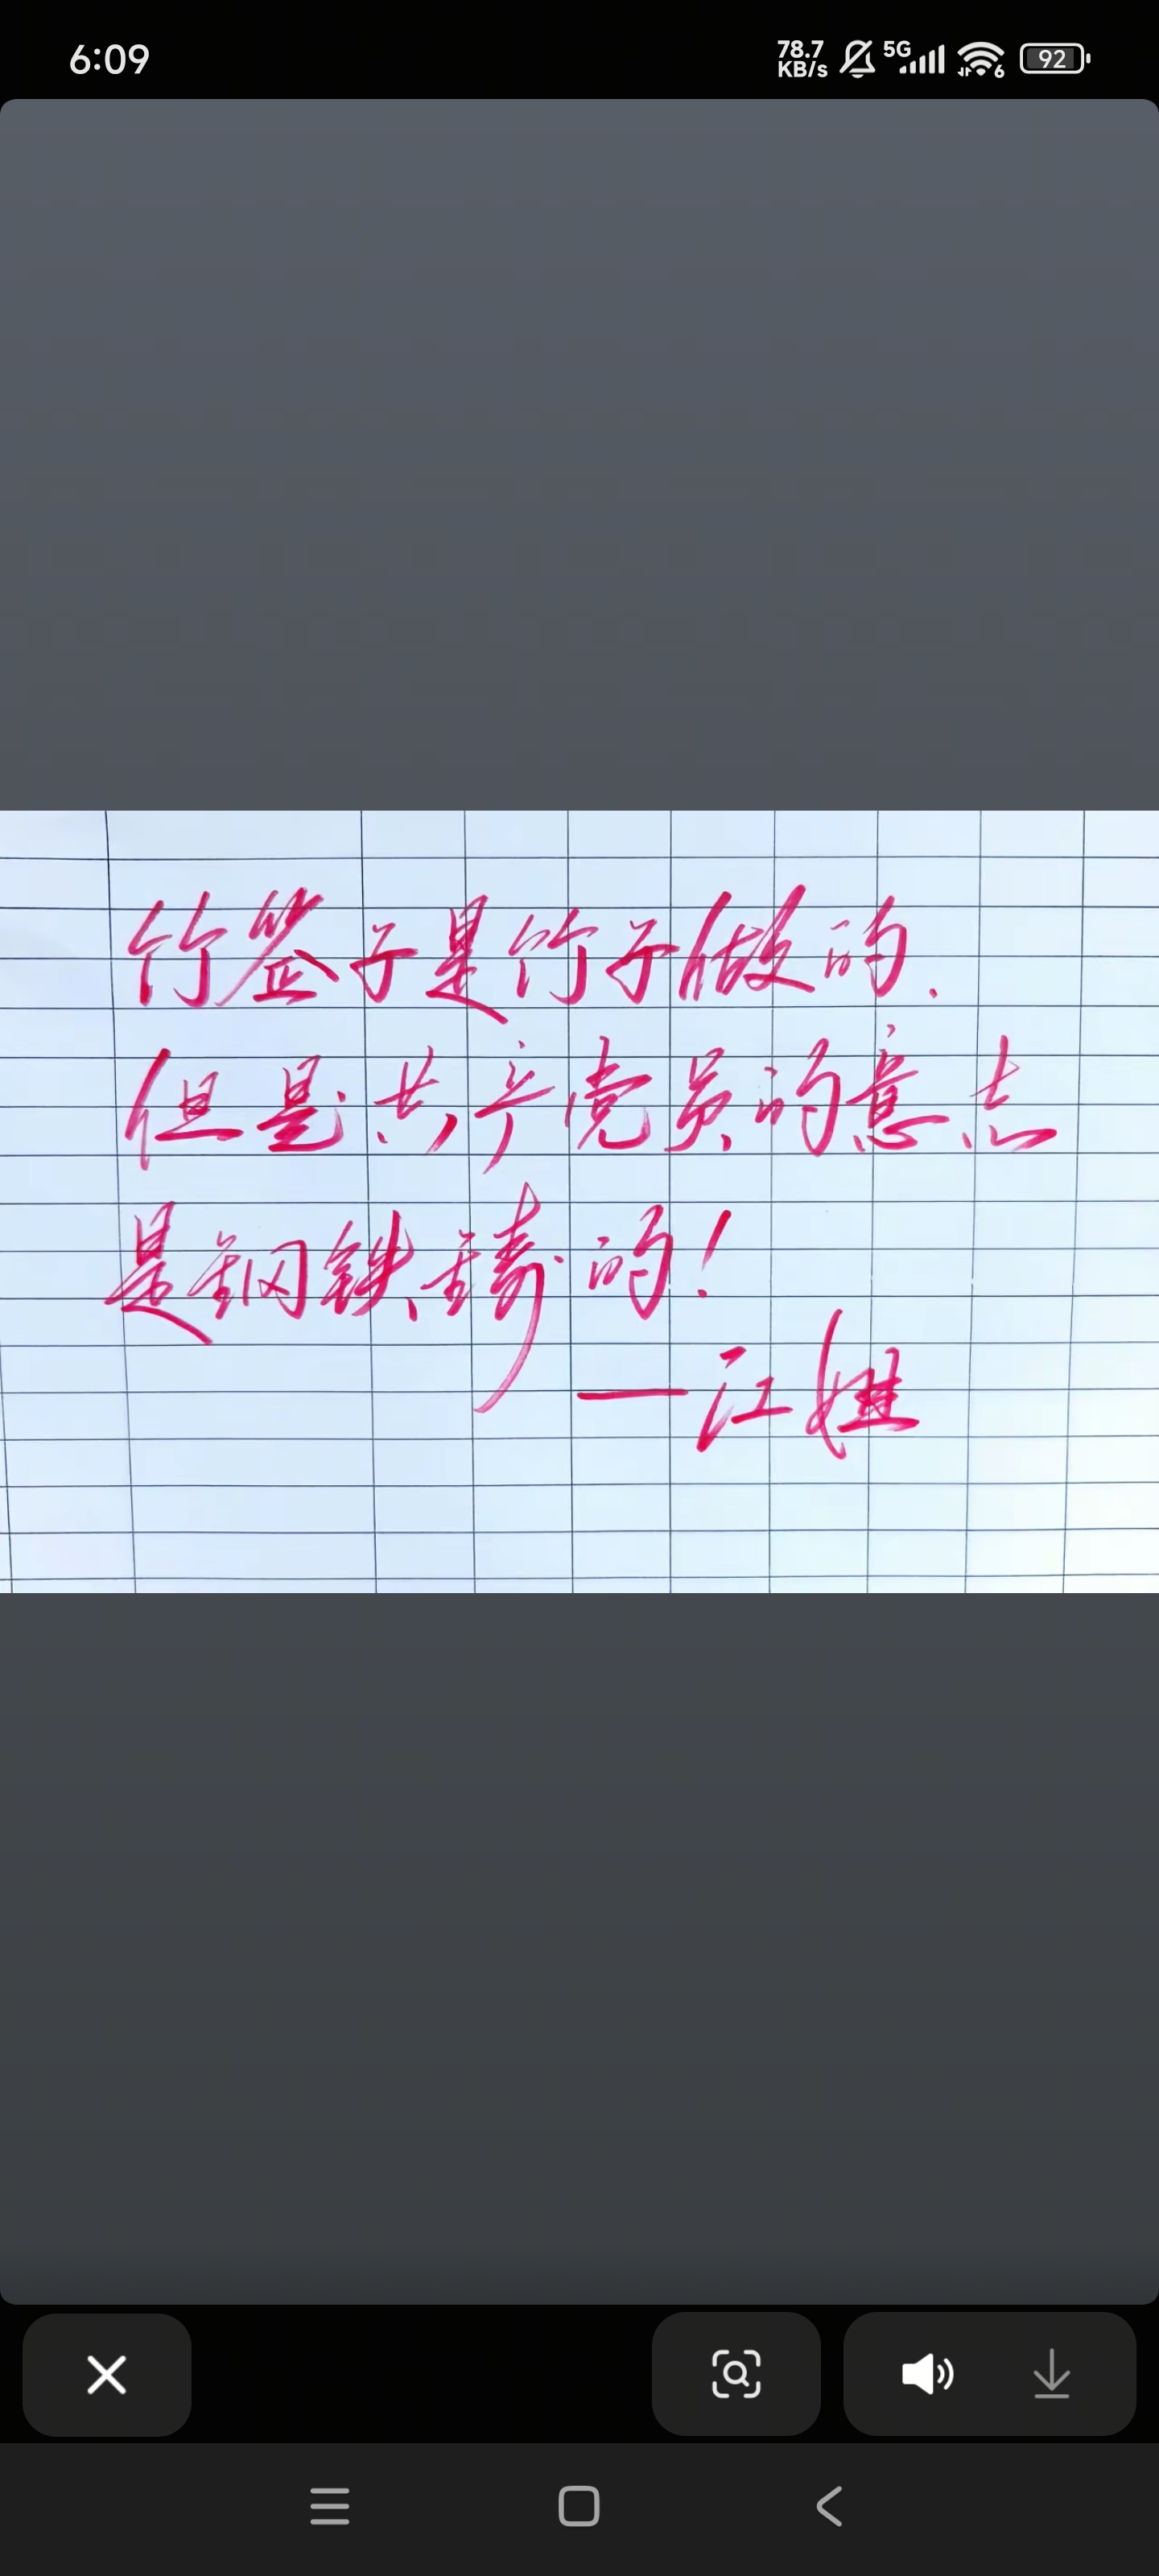 6:09
78.7
KB/s
5G
6
92
竹签子是竹子做的.
但是共产党员的意志
是钢铁铸的!
—江姐